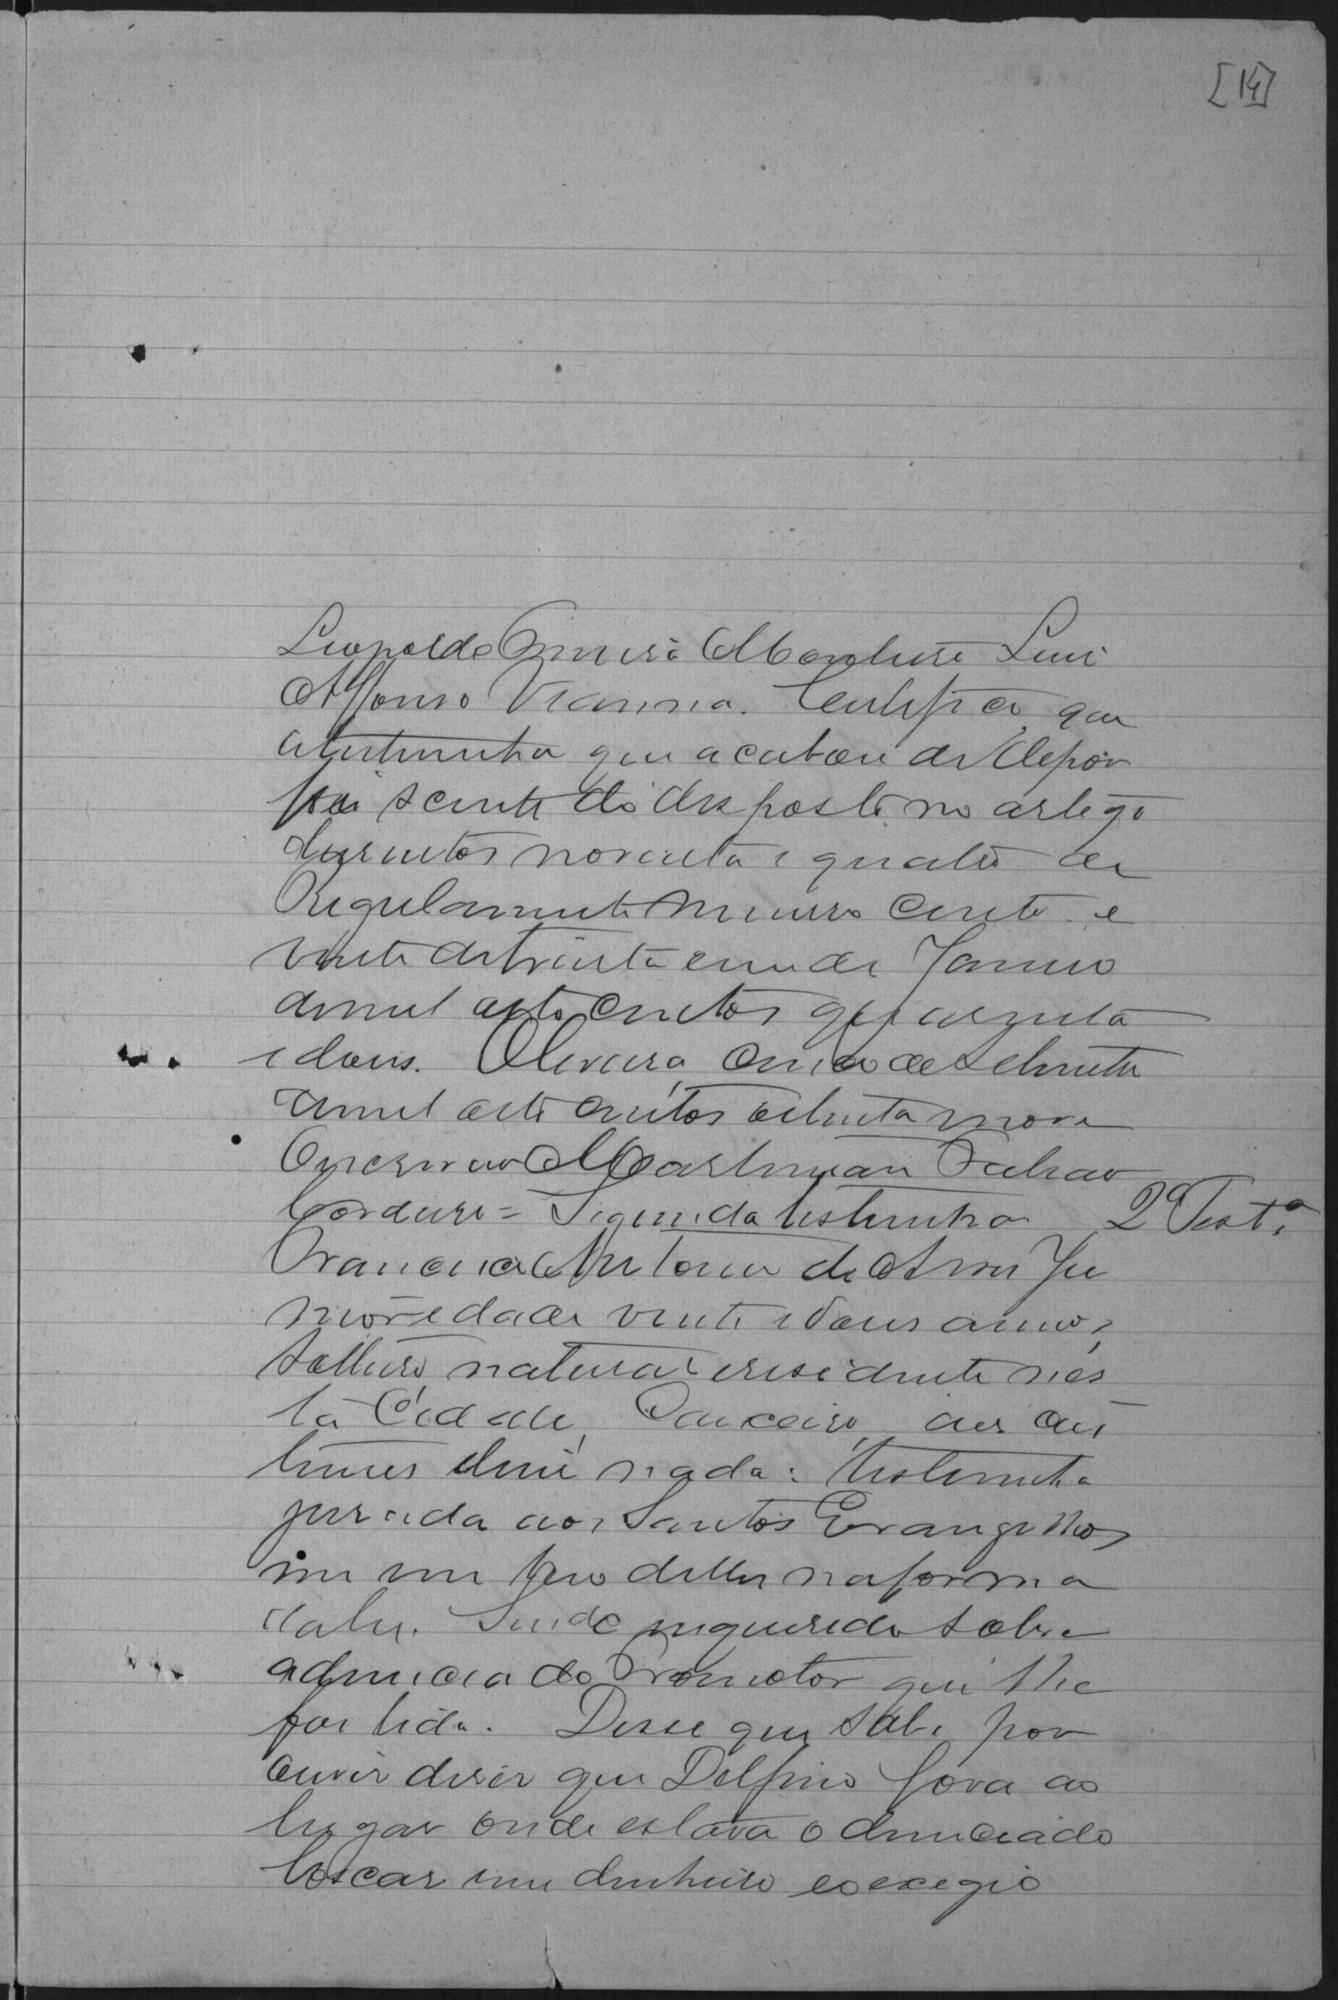 [14]
Leopoldo Amira Monteiro Luis
Affonso Vianna. Certifico que
atestimunha que acabou de depôr
foi sciente do disposto no artigo
dusentos noventa e quatro de
Regulamento numero cento e
vinte de trinta e um de Janeiro
demil oito centos quarenta
e dous. Oliveira, cinco de Setembro
demil oito centos oitenta nove
Escrivão
Cordeiro = Segunda testemunha 2ª Testª
Francisco Antonio de Assis Ju
nior edade vinte e dous annos,
solteiro natural e residente nes
ta Cidade, aos cus
tumes disse nada: testemunha
jurada aos Santos Evangelhos
em um livro delles na forma
da lei. Sendo inquerido sobre
a denuncia do Promotor que lhe
foi lida. Disse que sabe por
ouvir diser que Delfino fora ao
lugar onde estava o denunciado
boscar um dinheiro e o exegio